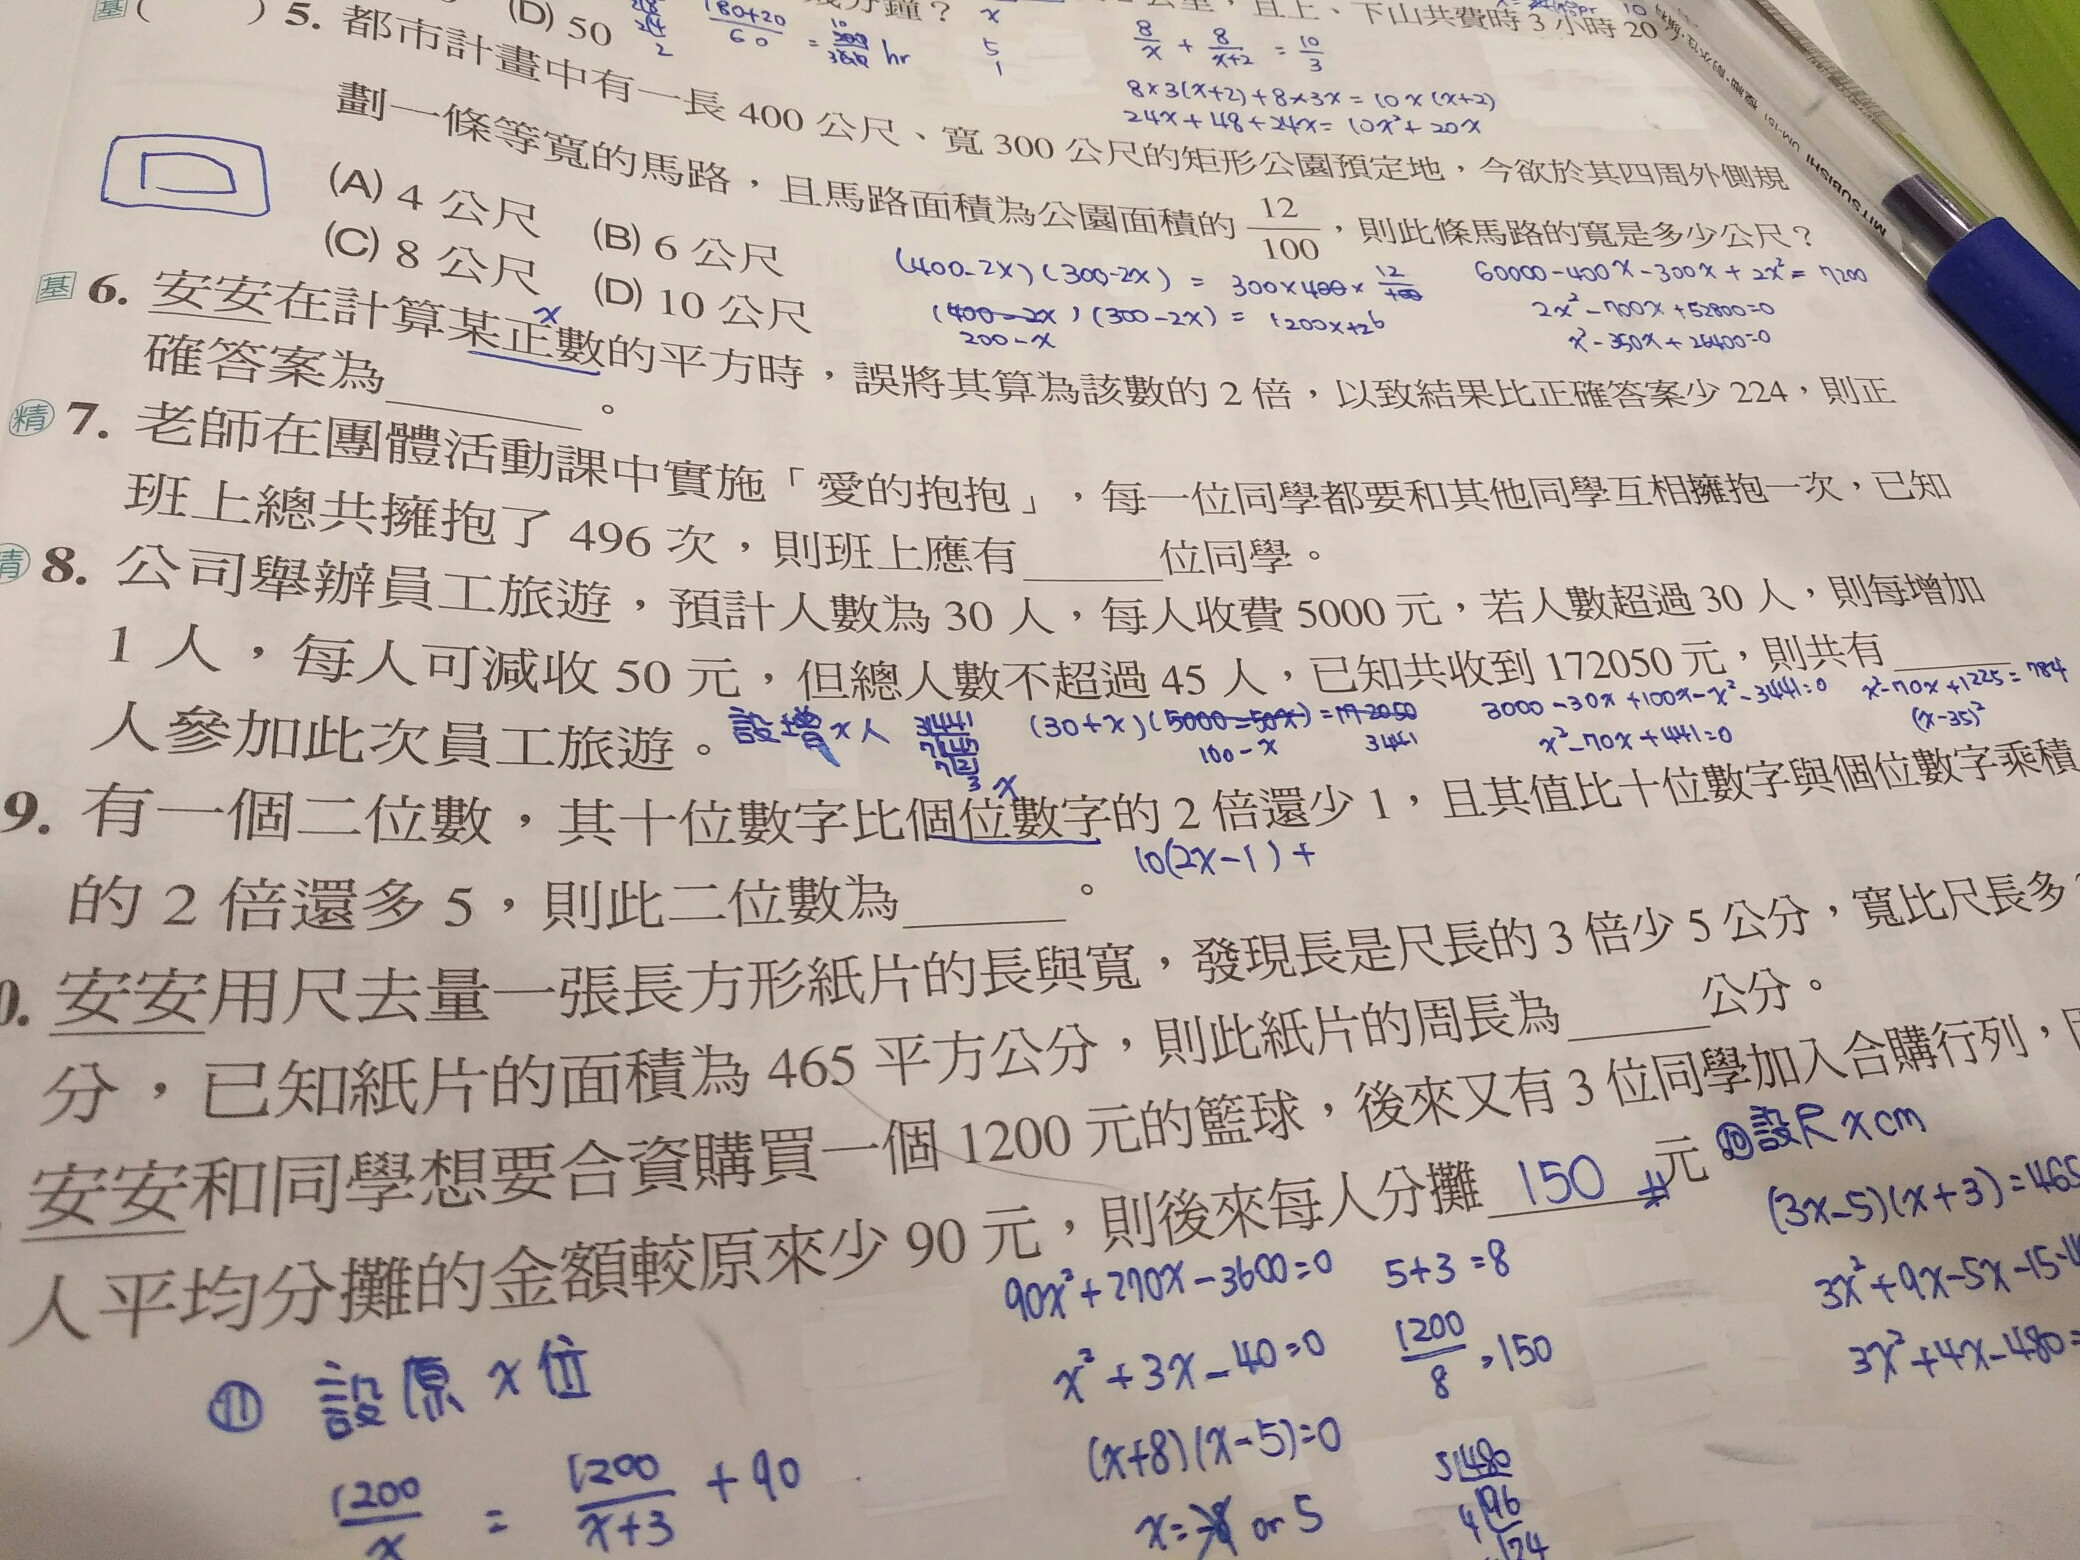 (D) 50
幾分鐘？
公里，且上、下山共費時 3 小時 20
180+20
60
hr
8/x + 8/x+2 = 10/3
8×3(x+2)+8×3x=10x(x+2)
24x+48+24x=10x²+20x
基 ( ) 5. 都市計畫中有一長 400 公尺、寬 300 公尺的矩形公園預定地，今欲於其四周外側規
劃一條等寬的馬路，且馬路面積為公園面積的 12/100，則此條馬路的寬是多少公尺？
(A) 4 公尺 (B) 6 公尺
(C) 8 公尺 (D) 10 公尺
(400-2x)(300-2x) = 300×400× 12/100
(400-2x)(300-2x) =
200-x
60000-400x-300x+2x²=7200
2x²-700x+52800=0
x²-350x+26400=0
x
基 6. 安安在計算某正數的平方時，誤將其算為該數的 2 倍，以致結果比正確答案少 224，則正
確答案為______。
精 7. 老師在團體活動課中實施「愛的抱抱」，每一位同學都要和其他同學互相擁抱一次，已知
班上總共擁抱了 496 次，則班上應有______位同學。
精 8. 公司舉辦員工旅遊，預計人數為 30 人，每人收費 5000 元，若人數超過 30 人，則每增加
1 人，每人可減收 50 元，但總人數不超過 45 人，已知共收到 172050 元，則共有______
人參加此次員工旅遊。
設增x人
(30+x)(5000-50x)=172050
100-x
3441
3000-30x+100x-x²-3441=0
x²-70x+441=0
x²-70x+1225=784
(x-35)²
x
9. 有一個二位數，其十位數字比個位數字的 2 倍還少 1，且其值比十位數字與個位數字乘積
的 2 倍還多 5，則此二位數為______。
10(2x-1)+
0. 安安用尺去量一張長方形紙片的長與寬，發現長是尺長的 3 倍少 5 公分，寬比尺長多
分，已知紙片的面積為 465 平方公分，則此紙片的周長為______公分。
安安和同學想要合資購買一個 1200 元的籃球，後來又有 3 位同學加入合購行列，
人平均分攤的金額較原來少 90 元，則後來每人分攤 150 # 元
⑩設尺 x cm
(3x-5)(x+3)=465
3x²+9x-5x-15-4
3x²+4x-480=
⑪ 設原 x 位
1200/x = 1200/x+3 + 90
90x²+270x-3600=0
x²+3x-40=0
(x+8)(x-5)=0
x=-8 or 5
5+3=8
1200/8=150
5 480
4 96
24